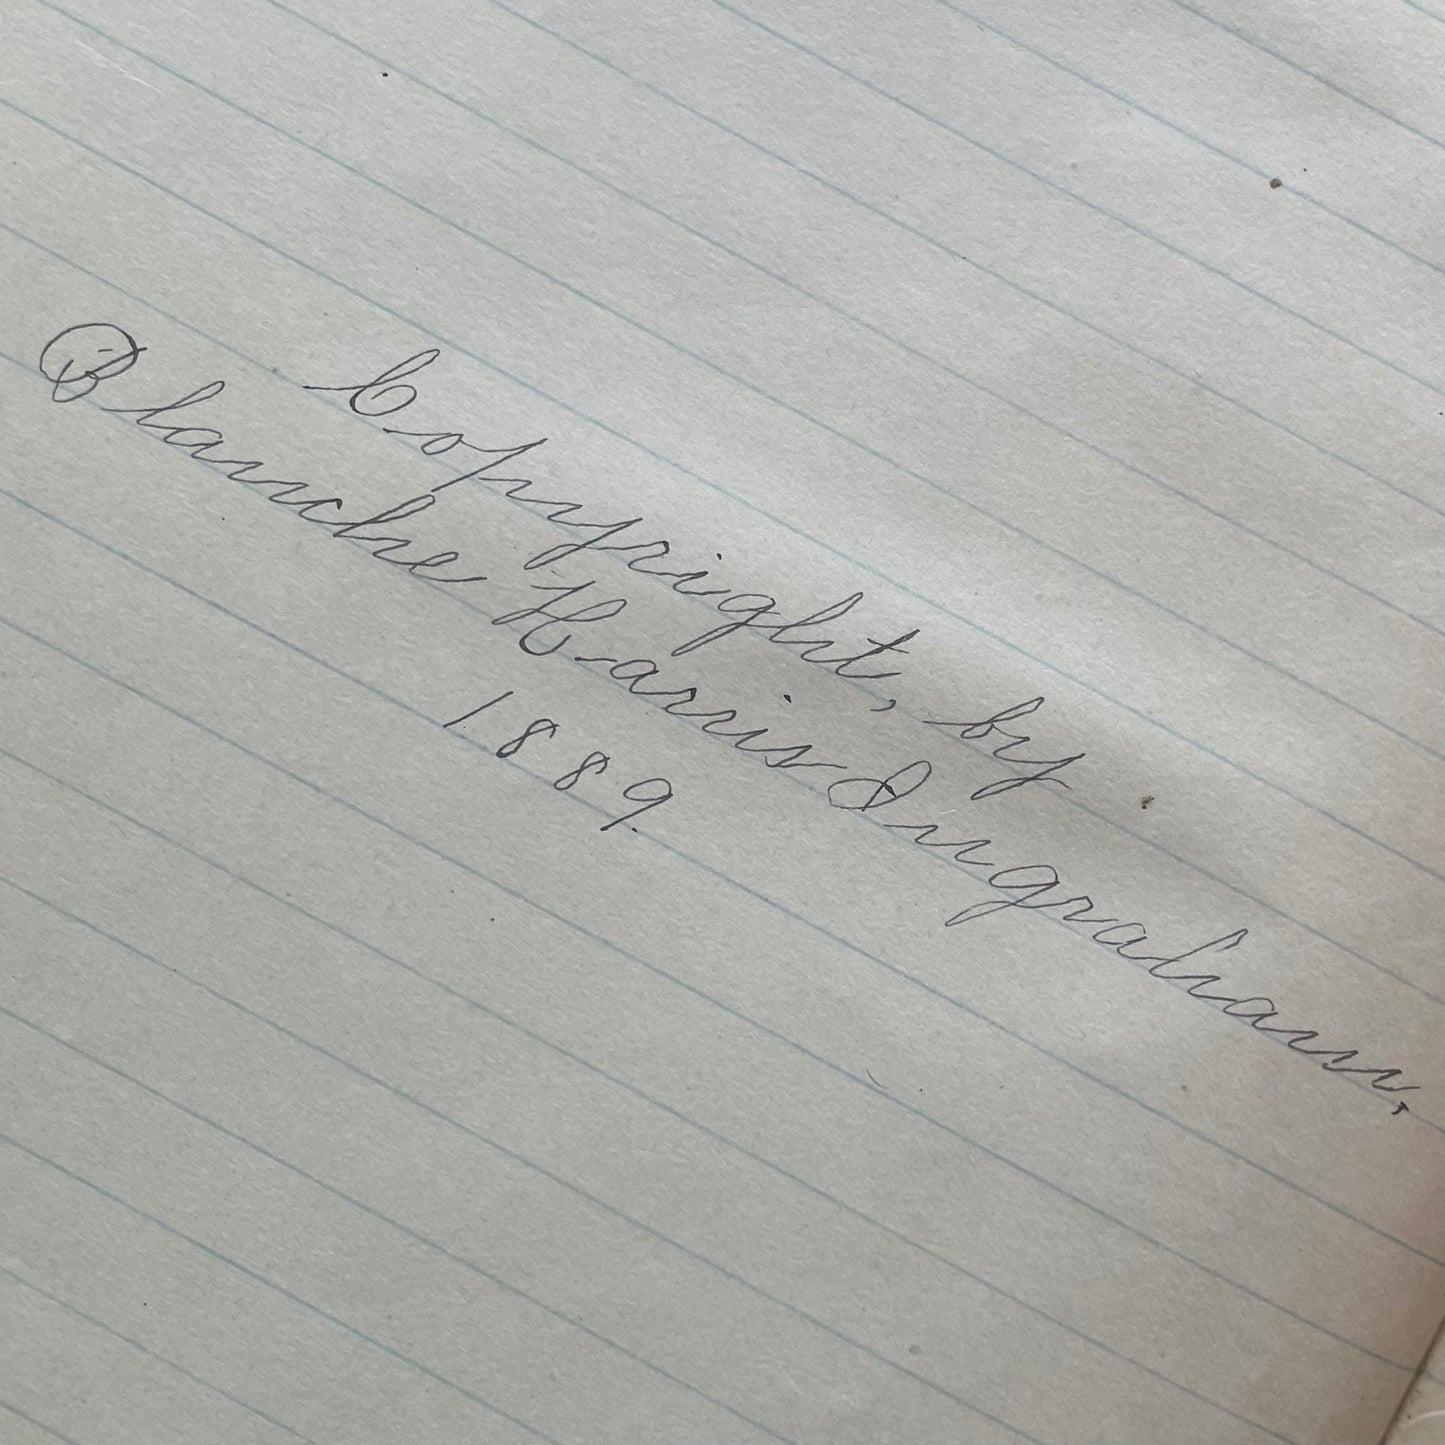 Copyright, by
Blanche Harris Ingraham,
1889.